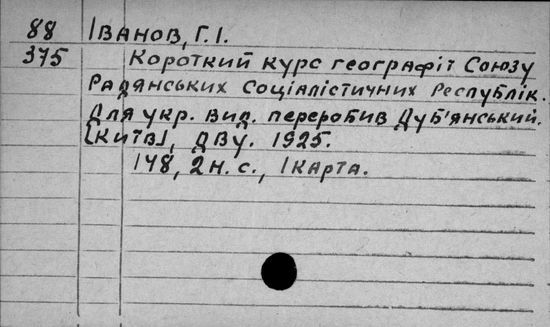 88 Іванов, Г.І.
375 Короткий курс географії Союзу
Радянських Соціалістичних Республік.
Для укр. вид. переробив Дуб'янський.
[Київ], ДВУ. 1925.
148, 2 н. с., 1 карта.